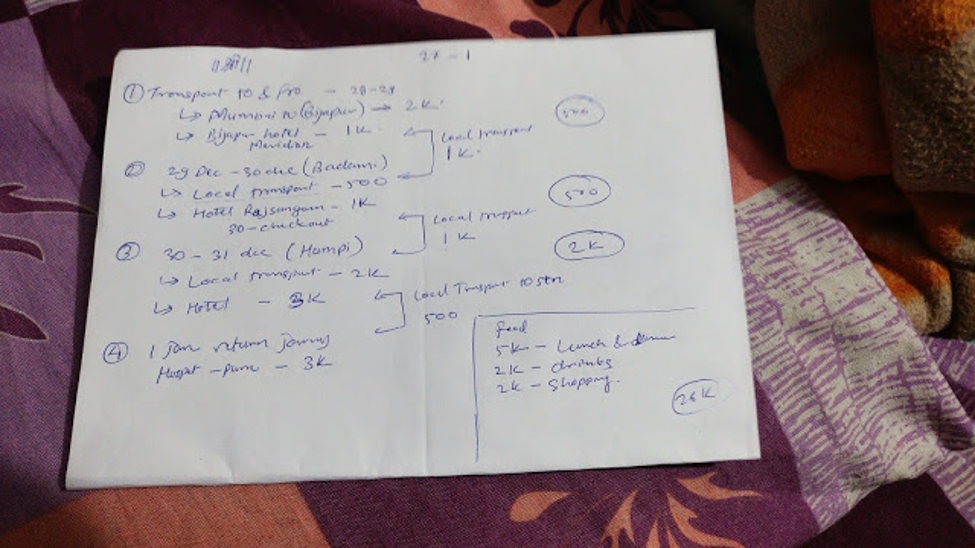 ||श्री||
27 - 1
① Transport to & fro - 28-29
↳ Mumbai to (Bijapur) → 2K.
↳ Bijapur hotel - 1K.
Meridian
Local transport
1K.
500
② 29 Dec - 30 dec (Badami)
↳ Local transport - 500
↳ Hotel Rajsangam - 1K
30 - checkout
Local transport
1K
500
③ 30 - 31 dec (Hampi)
↳ Local transport - 2K
↳ Hotel - 3K
2K
Local Transport to stn
500
④ 1 Jan return journey
Hospet - pune - 3K
food
5K - Lunch & dinner
2K - drinks
2K - Shopping.